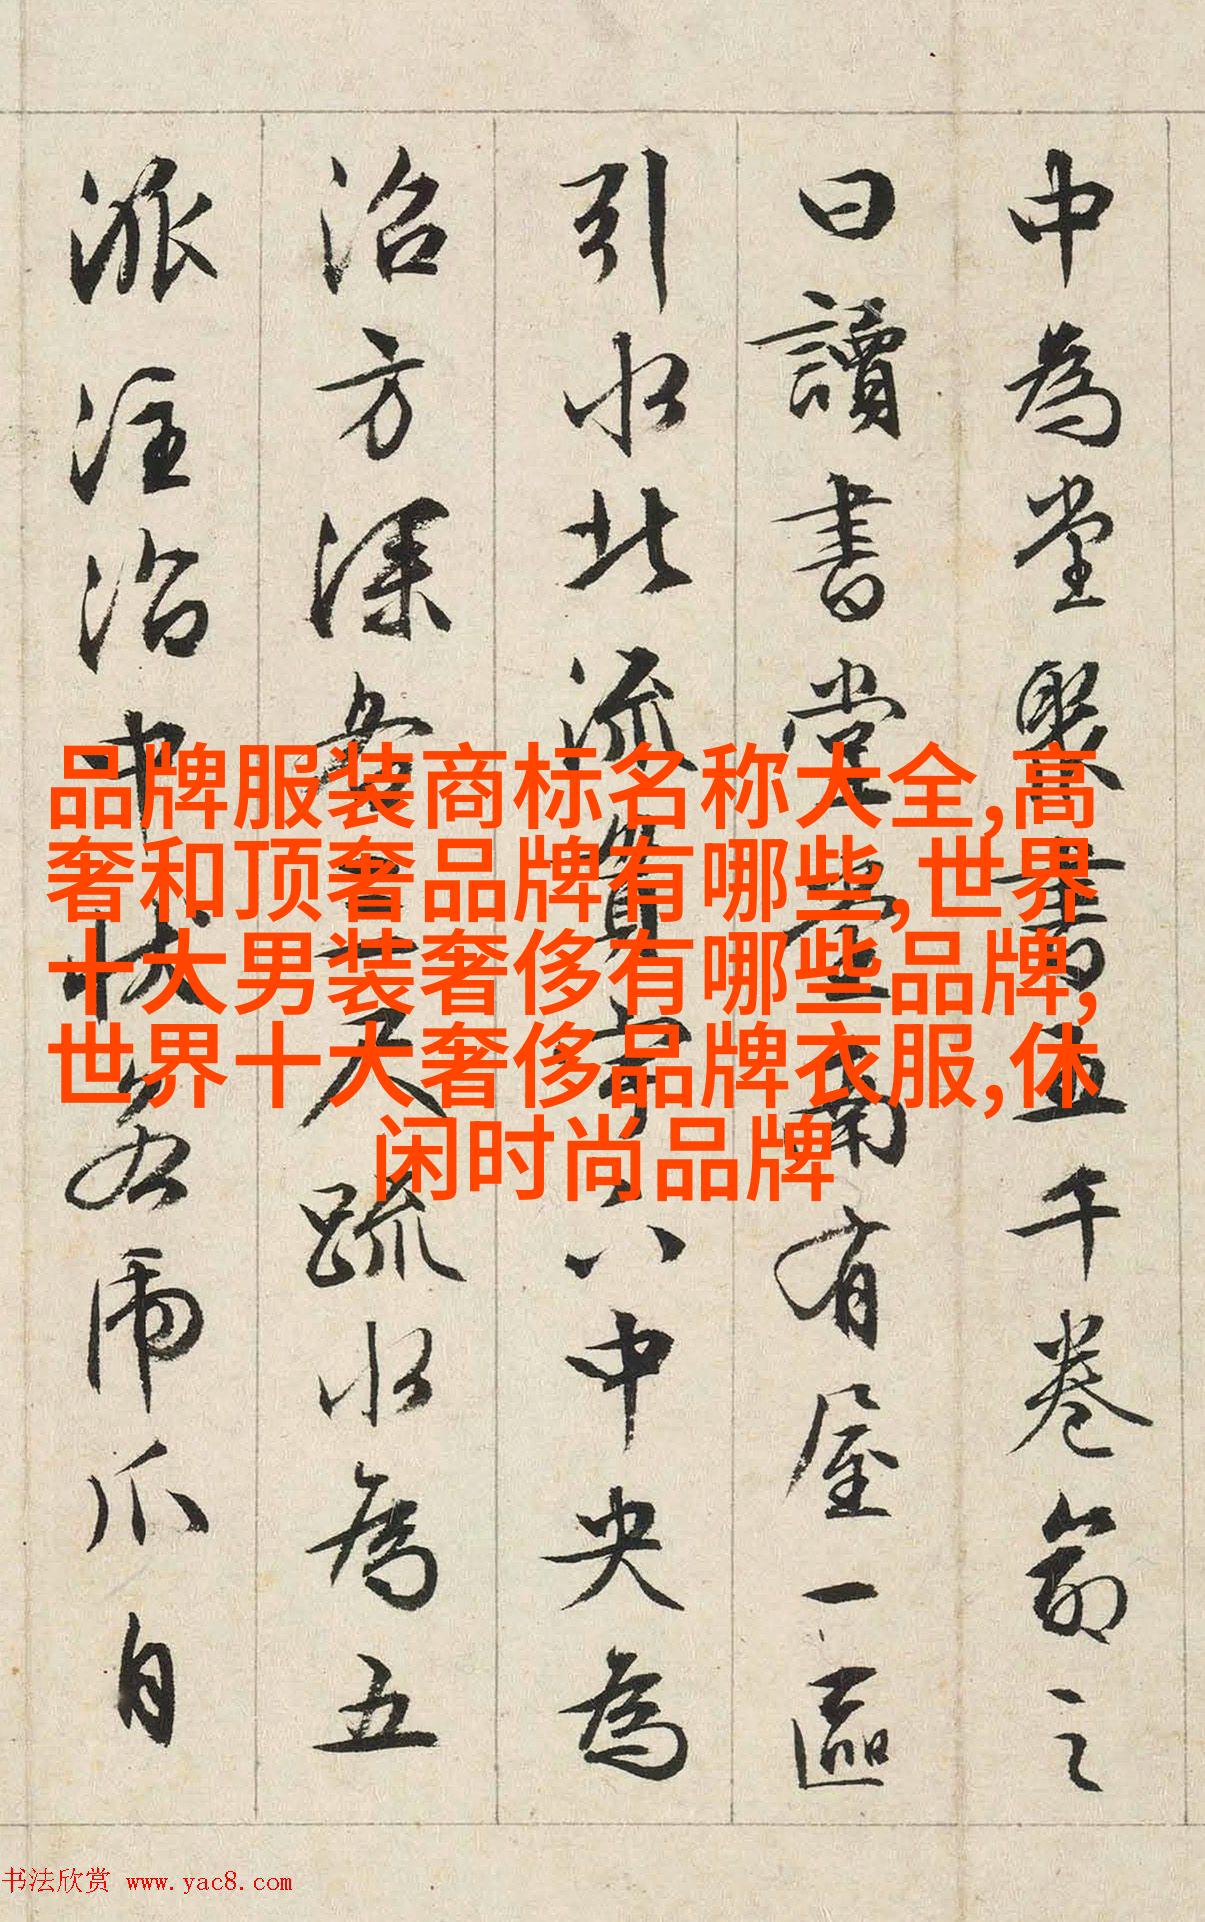 中為堂聚書五千卷命之
曰讀書堂堂南有屋一區
引水北流貫宇下中央為
沼方深各三尺疏水為五
派注沼中狀若虎爪自
品牌服装商标名称大全,高
奢和顶奢品牌有哪些,世界
十大男装奢侈有哪些品牌,
世界十大奢侈品牌衣服,休
闲时尚品牌
书法欣赏 www.yac8.com